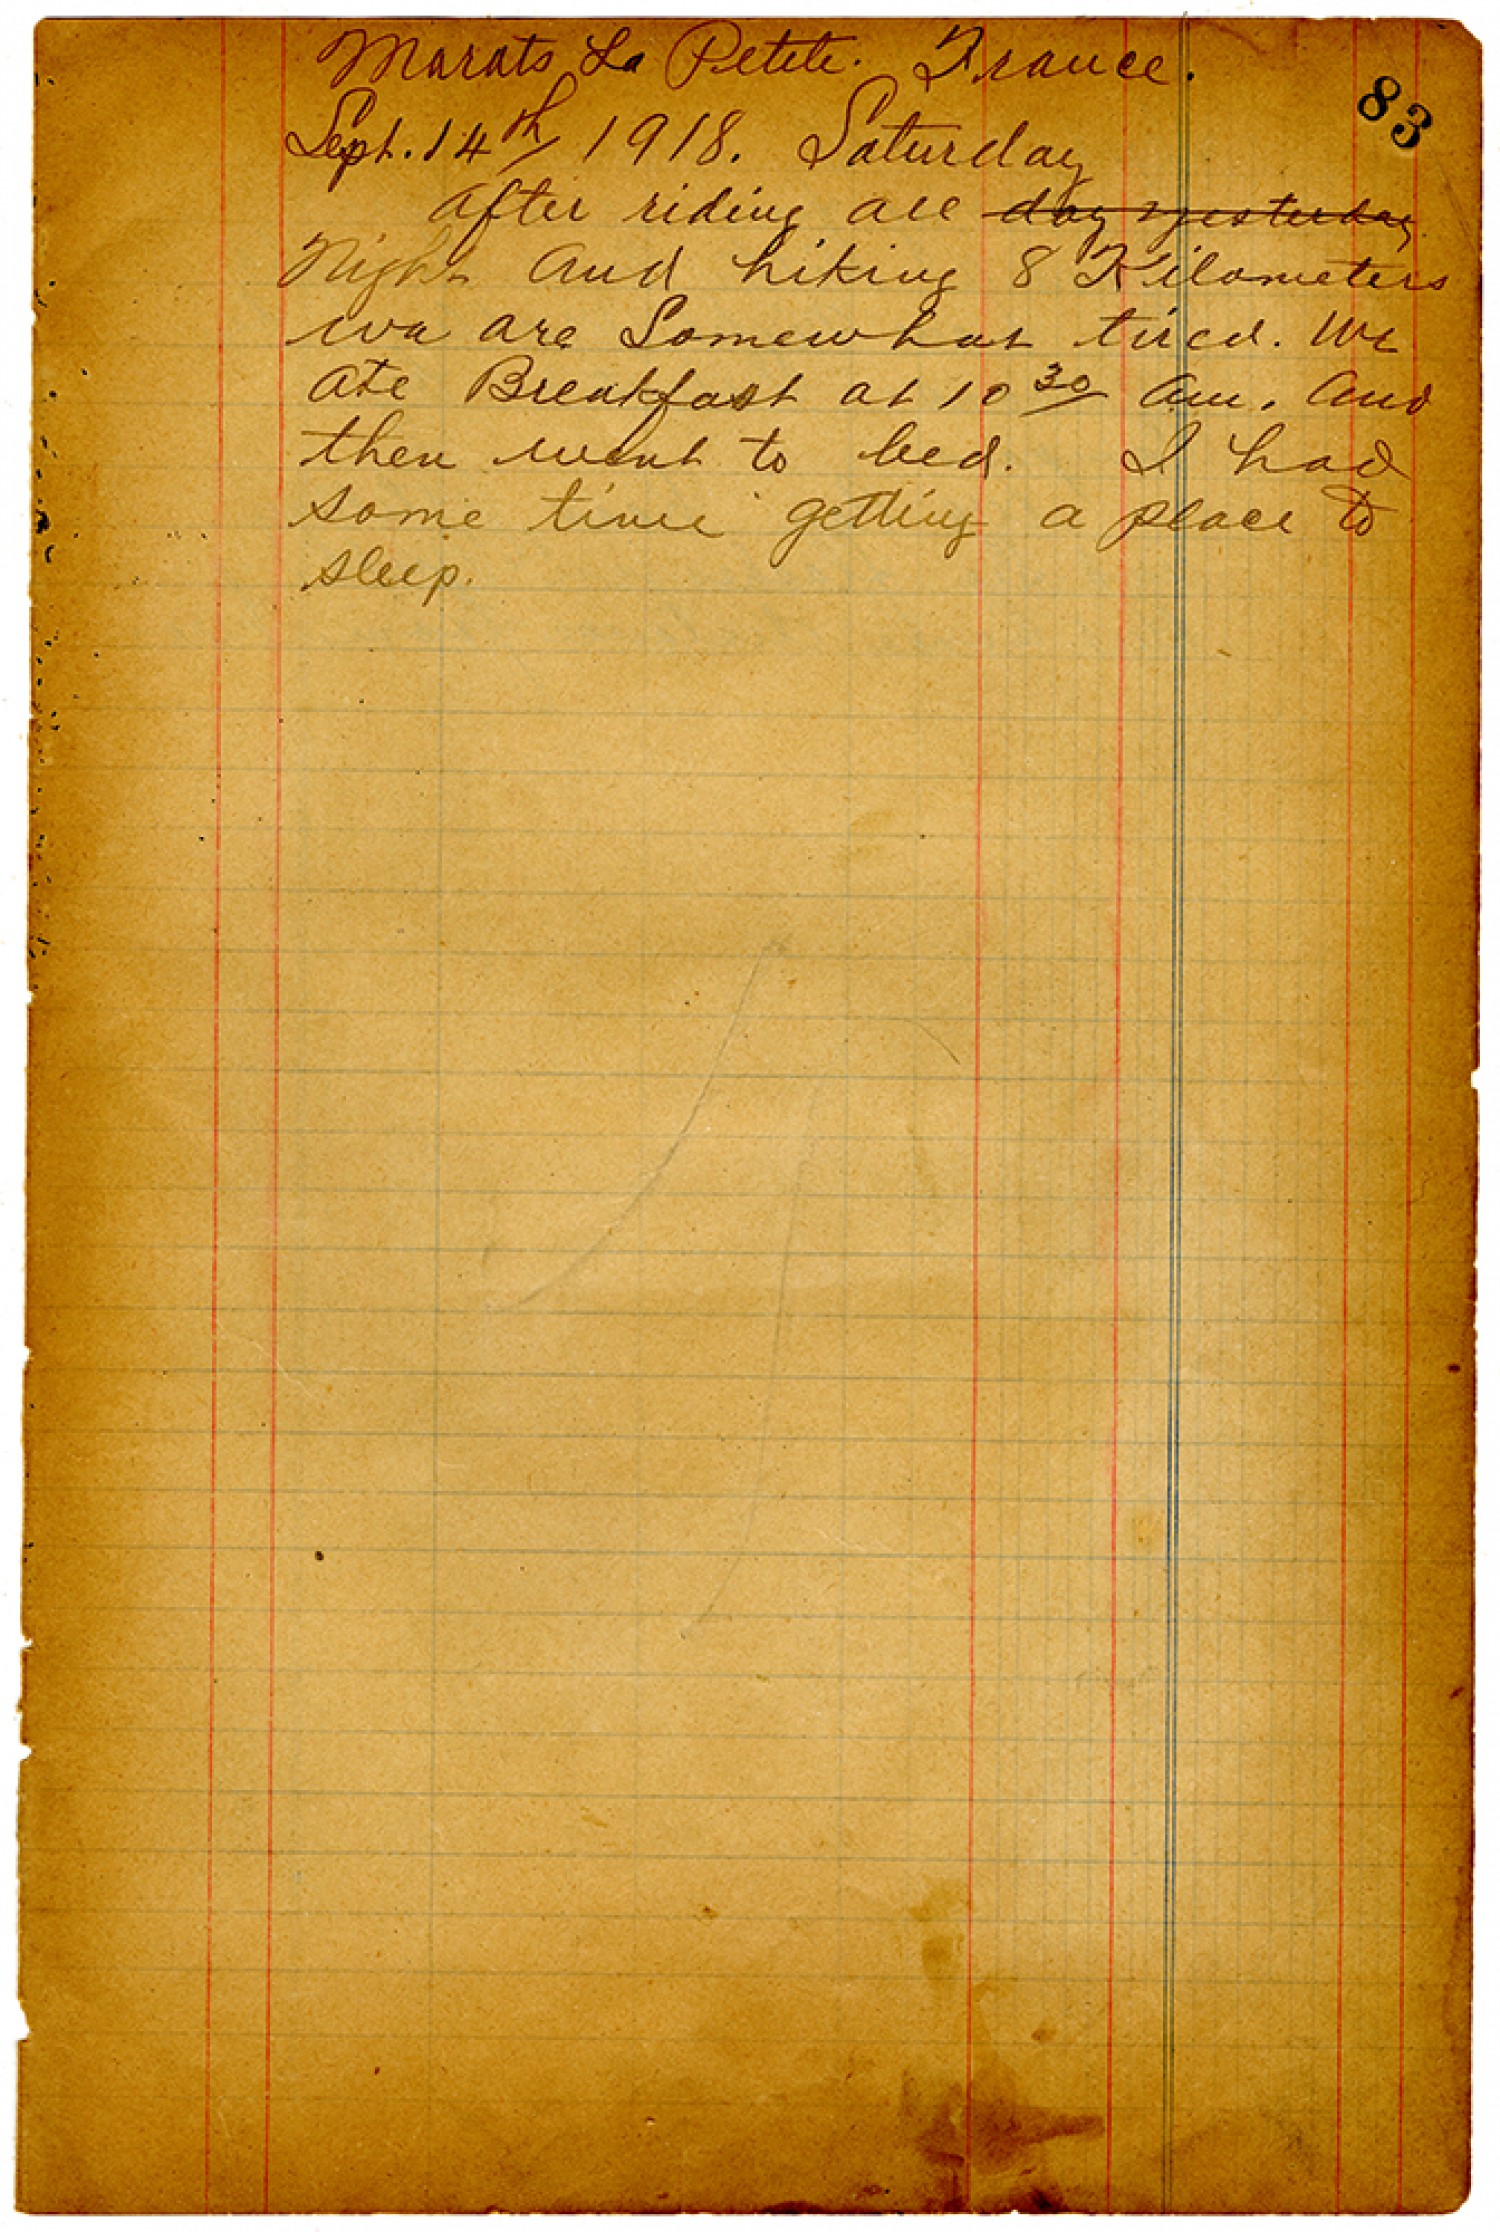 Marats La Petite. France.
83
Sept. 14th 1918. Saturday
After riding all ~~day yesterday~~
Night and hiking 8 Kilometers
we are Somewhat tired. We
ate Breakfast at 10 30 am. and
then went to bed. I had
some time getting a place to
sleep.